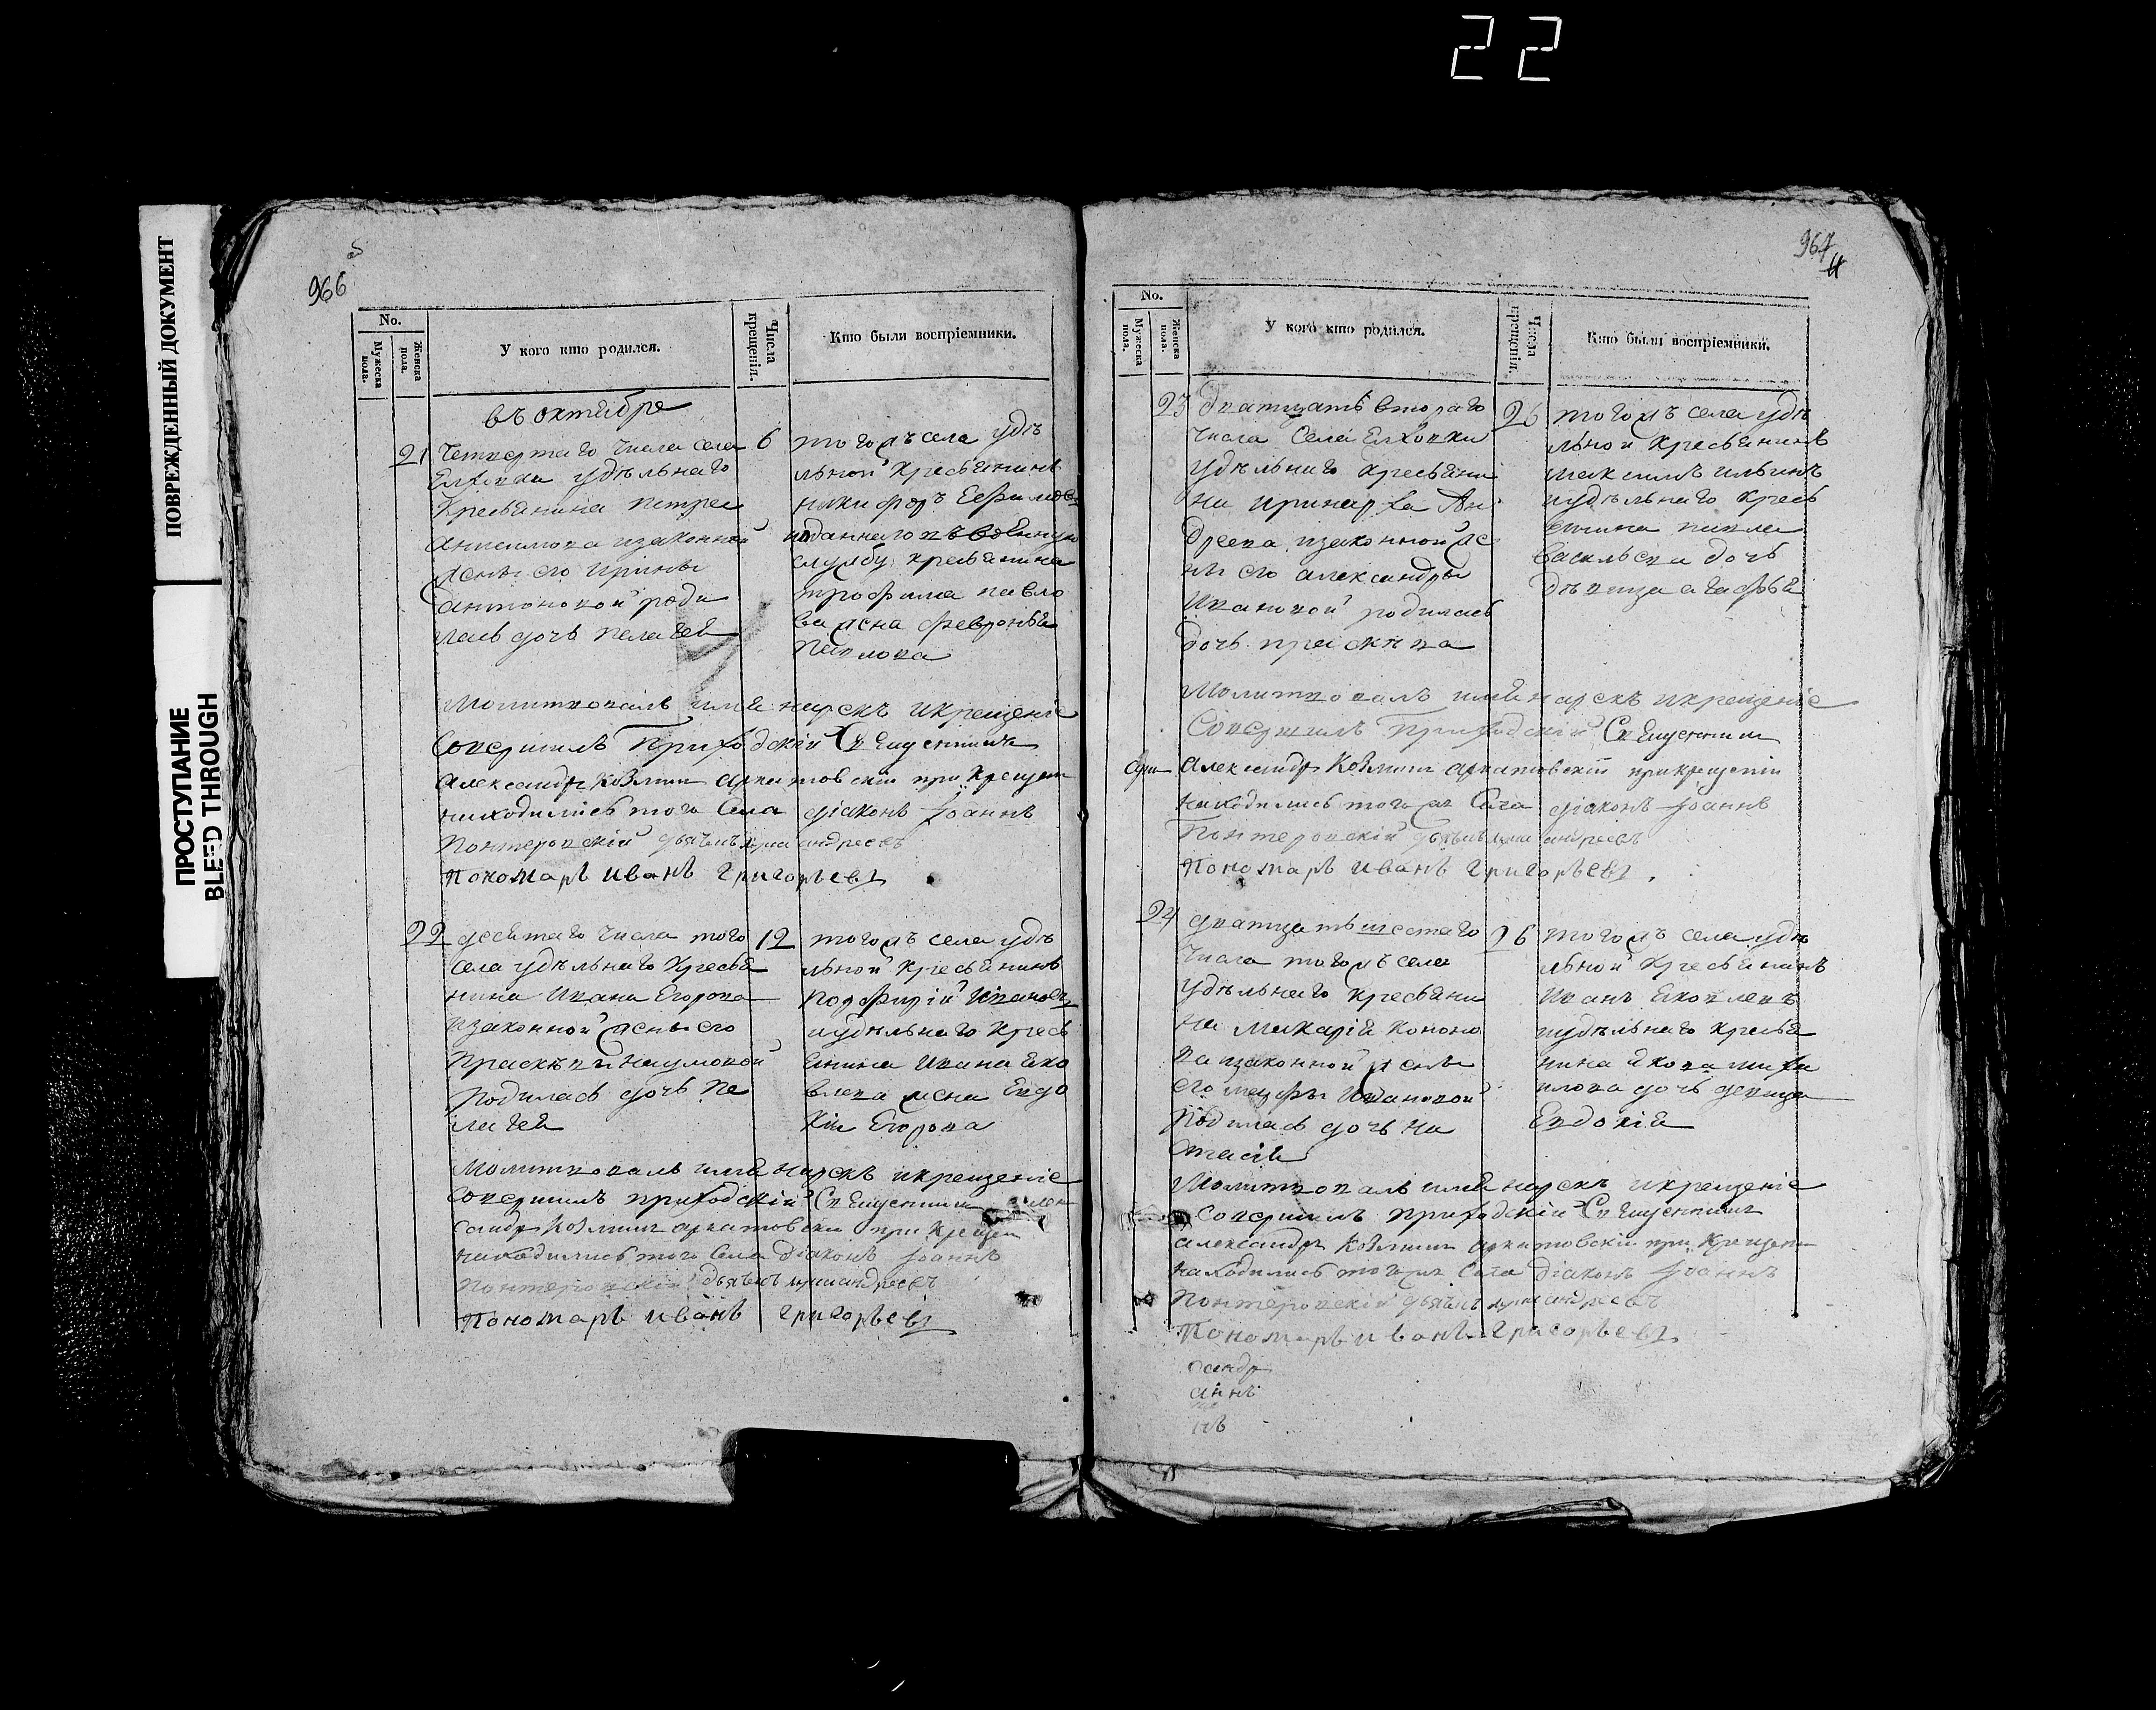 22
ПОВРЕЖДЕННЫЙ ДОКУМЕНТ
ПРОСТУПАНИЕ
BLEED THROUGH
966
No.
Мужеска пола.
Женска пола.
У кого кто родился.
Числа крещенія.
Кто были воспріемники.
въ октябре
21
Четвертаго числа села
Елховки удѣльнаго
Кресьянина петра
анисимова изаконной
жены его ирины
антоновой роди
лась дочь пелагея
6
тогожъ села удѣ
льной кресьянинъ
никифоръ Ефимовъ
иотданнаго въ военную
службу кресьянина
трофима павло
ва жена февронья
Павлова
Молитвовалъ имя нарекъ икрещеніе
Совершилъ Приходскій Священникъ
Александръ Козминъ архатовскій при Крещеніи
находились того Села діаконъ Іоаннъ
дьячекъ андреевъ
Пономарь иванъ григорьевъ
22
десятаго числа того
села удѣльнаго Кресья
нина Ивана Егорова
изаконной жены его
Прасковьи Наумовой
Родилась дочь Пе
лагея
12
тогожъ села удѣ
льной Кресьянинъ
Порфирій Ивановъ
иудѣльнаго Кресь
янина Ивана Яко
влева жена Евдо
кия Егорова
Молитвовалъ имя нарекъ икрещеніе
совершилъ приходскій Священникъ алек
сандръ Козминъ архатовски при Крещеніи
находились того Села діаконъ Іоаннъ
дьячекъ андреевъ
Пономарь иванъ григорьевъ
967
No.
Мужеска пола.
Женска пола.
У кого кто родился.
Числа крещенія.
Кто были воспріемники.
23
Дватцать втораго
числа Села Елховки
удѣльнаго кресьяни
на иринарха Ан
дреева изаконной же
ны его александры
Ивановой родилась
дочь праскива
26
тогожъ села удѣ
льной Кресьянинъ
максимъ ильинъ
иудѣльнаго кресь
янина павла
Васильева дочь
дѣвица агафья
Молитвовалъ имя нарекъ икрещеніе
Совершилъ Приходскій Священникъ
Александръ Козминъ архатовскій прикрещеніи
находились тогожъ Села діаконъ Іоаннъ
дьячекъ андреевъ
Пономарь иванъ григорьевъ
24
дватцать шестаго
Числа тогожъ села
удѣльнаго кресьяни
на МакаріяКононо
ва изаконной жены
его марфы Ивановой
Родилась дочь На
стасія
26
тогожъ села удѣ
льной Кресьянинъ
Иванъ Яковлевъ
иудѣльнаго кресья
нина якова михаи
лова дочь девица
Евдокія
Молитвовалъ имя нарекъ икрещеніе
Совершилъ приходскій Священникъ
александръ Козминъ архатовскій при Крещеніи
находились тогожъ Села діаконъ Іоаннъ
дьячекъ андреевъ
Пономарь иванъ григорьевъ
сандр
аннъ
нъ